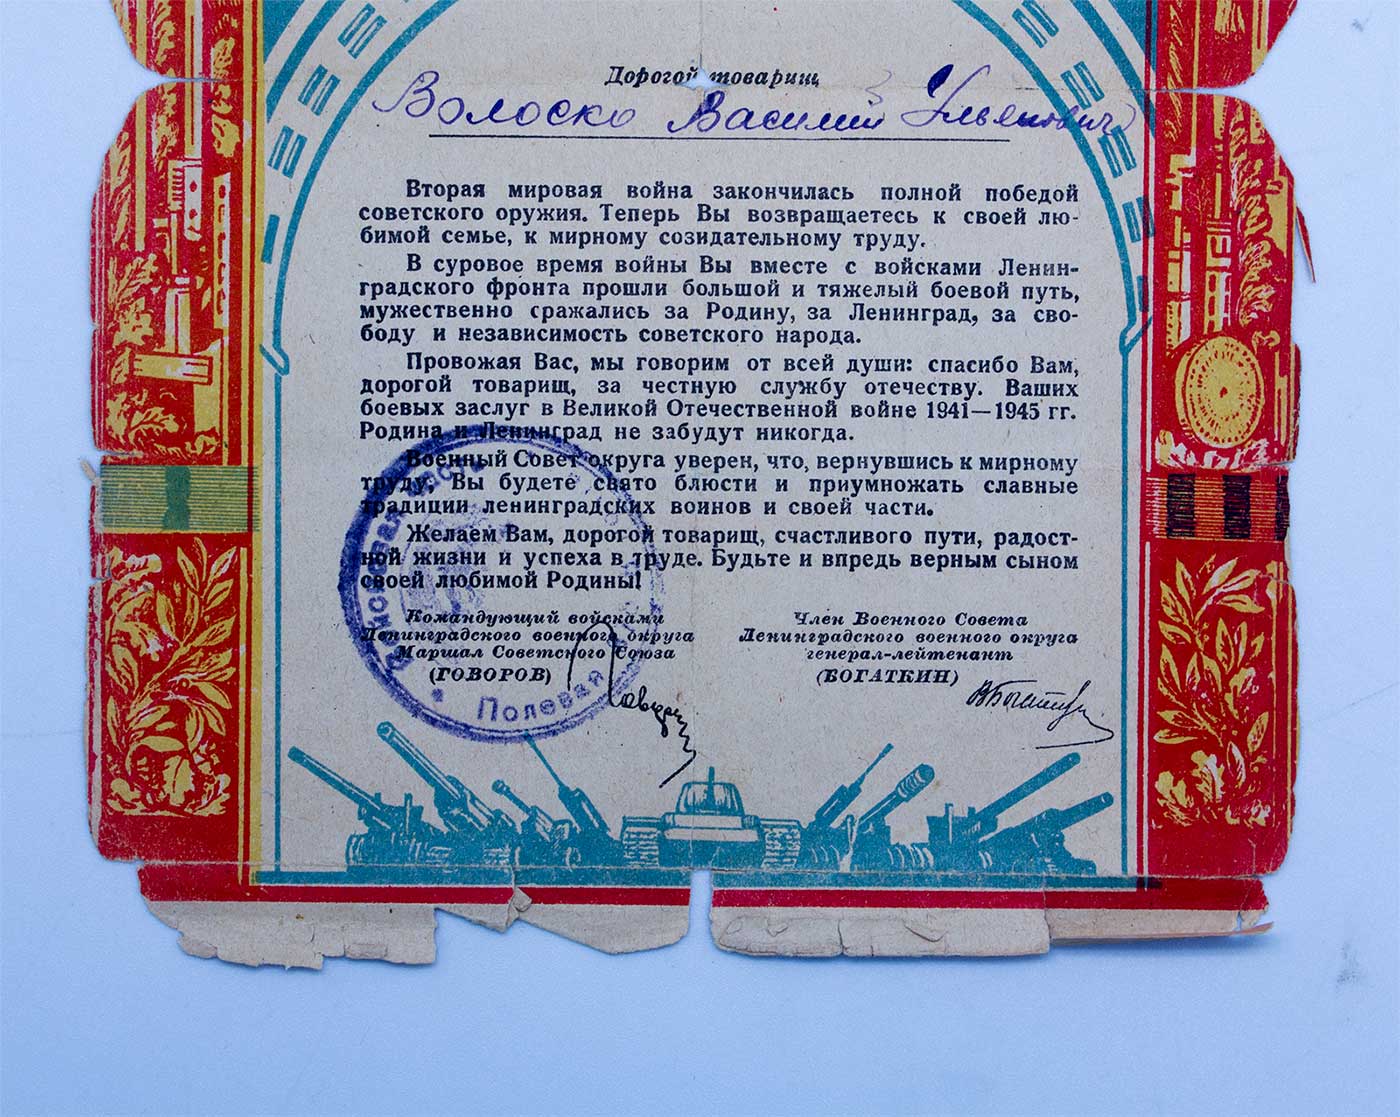 Дорогой товарищ
Волоско Василий Ульянович
Вторая мировая война закончилась полной победой
советского оружия. Теперь Вы возвращаетесь к своей лю-
бимой семье, к мирному созидательному труду.
В суровое время войны Вы вместе с войсками Ленин-
градского фронта прошли большой и тяжелый боевой путь,
мужественно сражались за Родину, за Ленинград, за сво-
боду и независимость советского народа.
Провожая Вас, мы говорим от всей души: спасибо Вам,
дорогой товарищ, за честную службу отечеству. Ваших
боевых заслуг в Великой Отечественной войне 1941—1945 гг.
Родина и Ленинград не забудут никогда.
Военный Совет округа уверен, что, вернувшись к мирному
труду, Вы будете свято блюсти и приумножать славные
традиции ленинградских воинов и своей части.
Желаем Вам, дорогой товарищ, счастливого пути, радост-
ной жизни и успеха в труде. Будьте и впредь верным сыном
своей любимой Родины!
Командующий войсками
Ленинградского военного округа
Маршал Советского Союза
(ГОВОРОВ)
Говоров
Член Военного Совета
Ленинградского военного округа
генерал-лейтенант
(БОГАТКИН)
ВБогаткин
Войсковая часть
Полевая